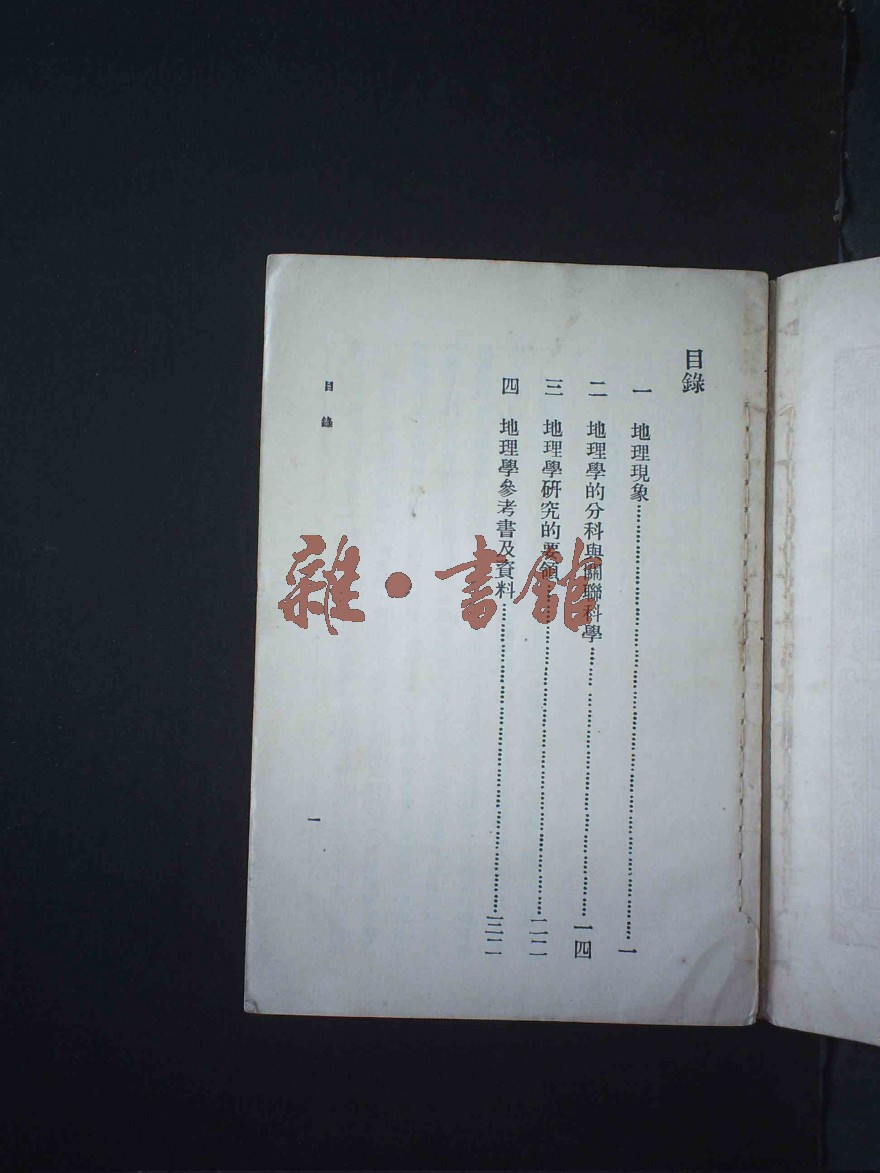 目錄
一 地理現象……一
二 地理學的分科與關聯科學……一四
三 地理學研究的要領……二二
四 地理學參考書及資料……三二
目錄
一
雜·書館